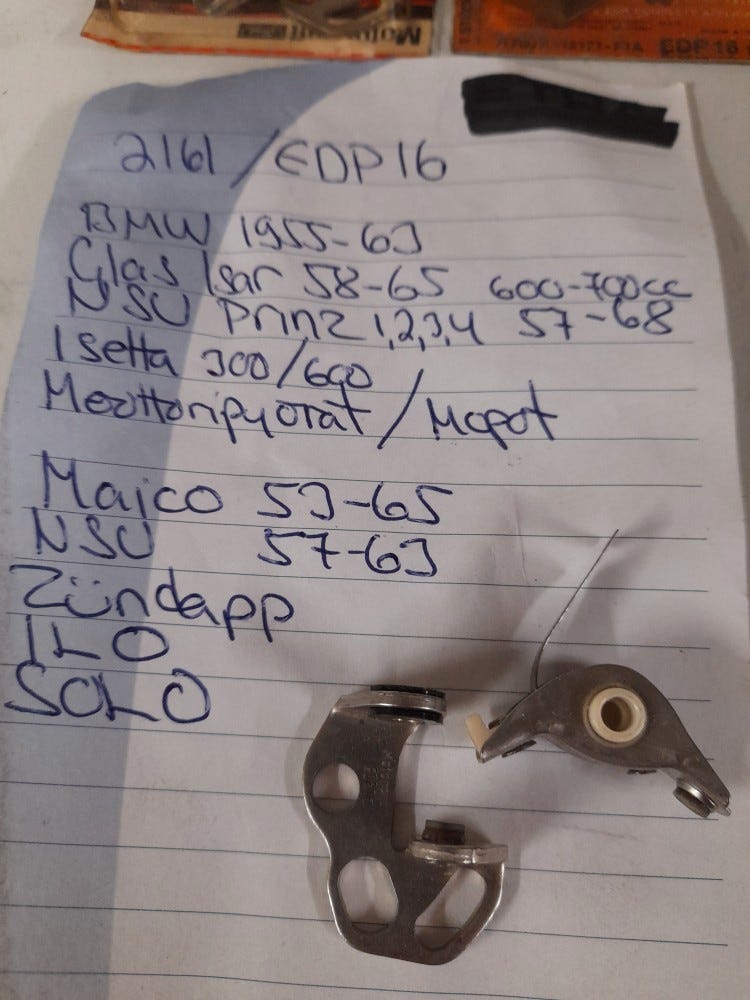 EDP 16
2161/EDP16
BMW 1955-63
Glas Isar 58-65 600-700cc
NSU Prinz 1,2,3,4 57-68
Isetta 300/600
Moottoripyorat/Mopot
Maico 53-65
NSU 57-63
Zündapp
ILO
SOLO